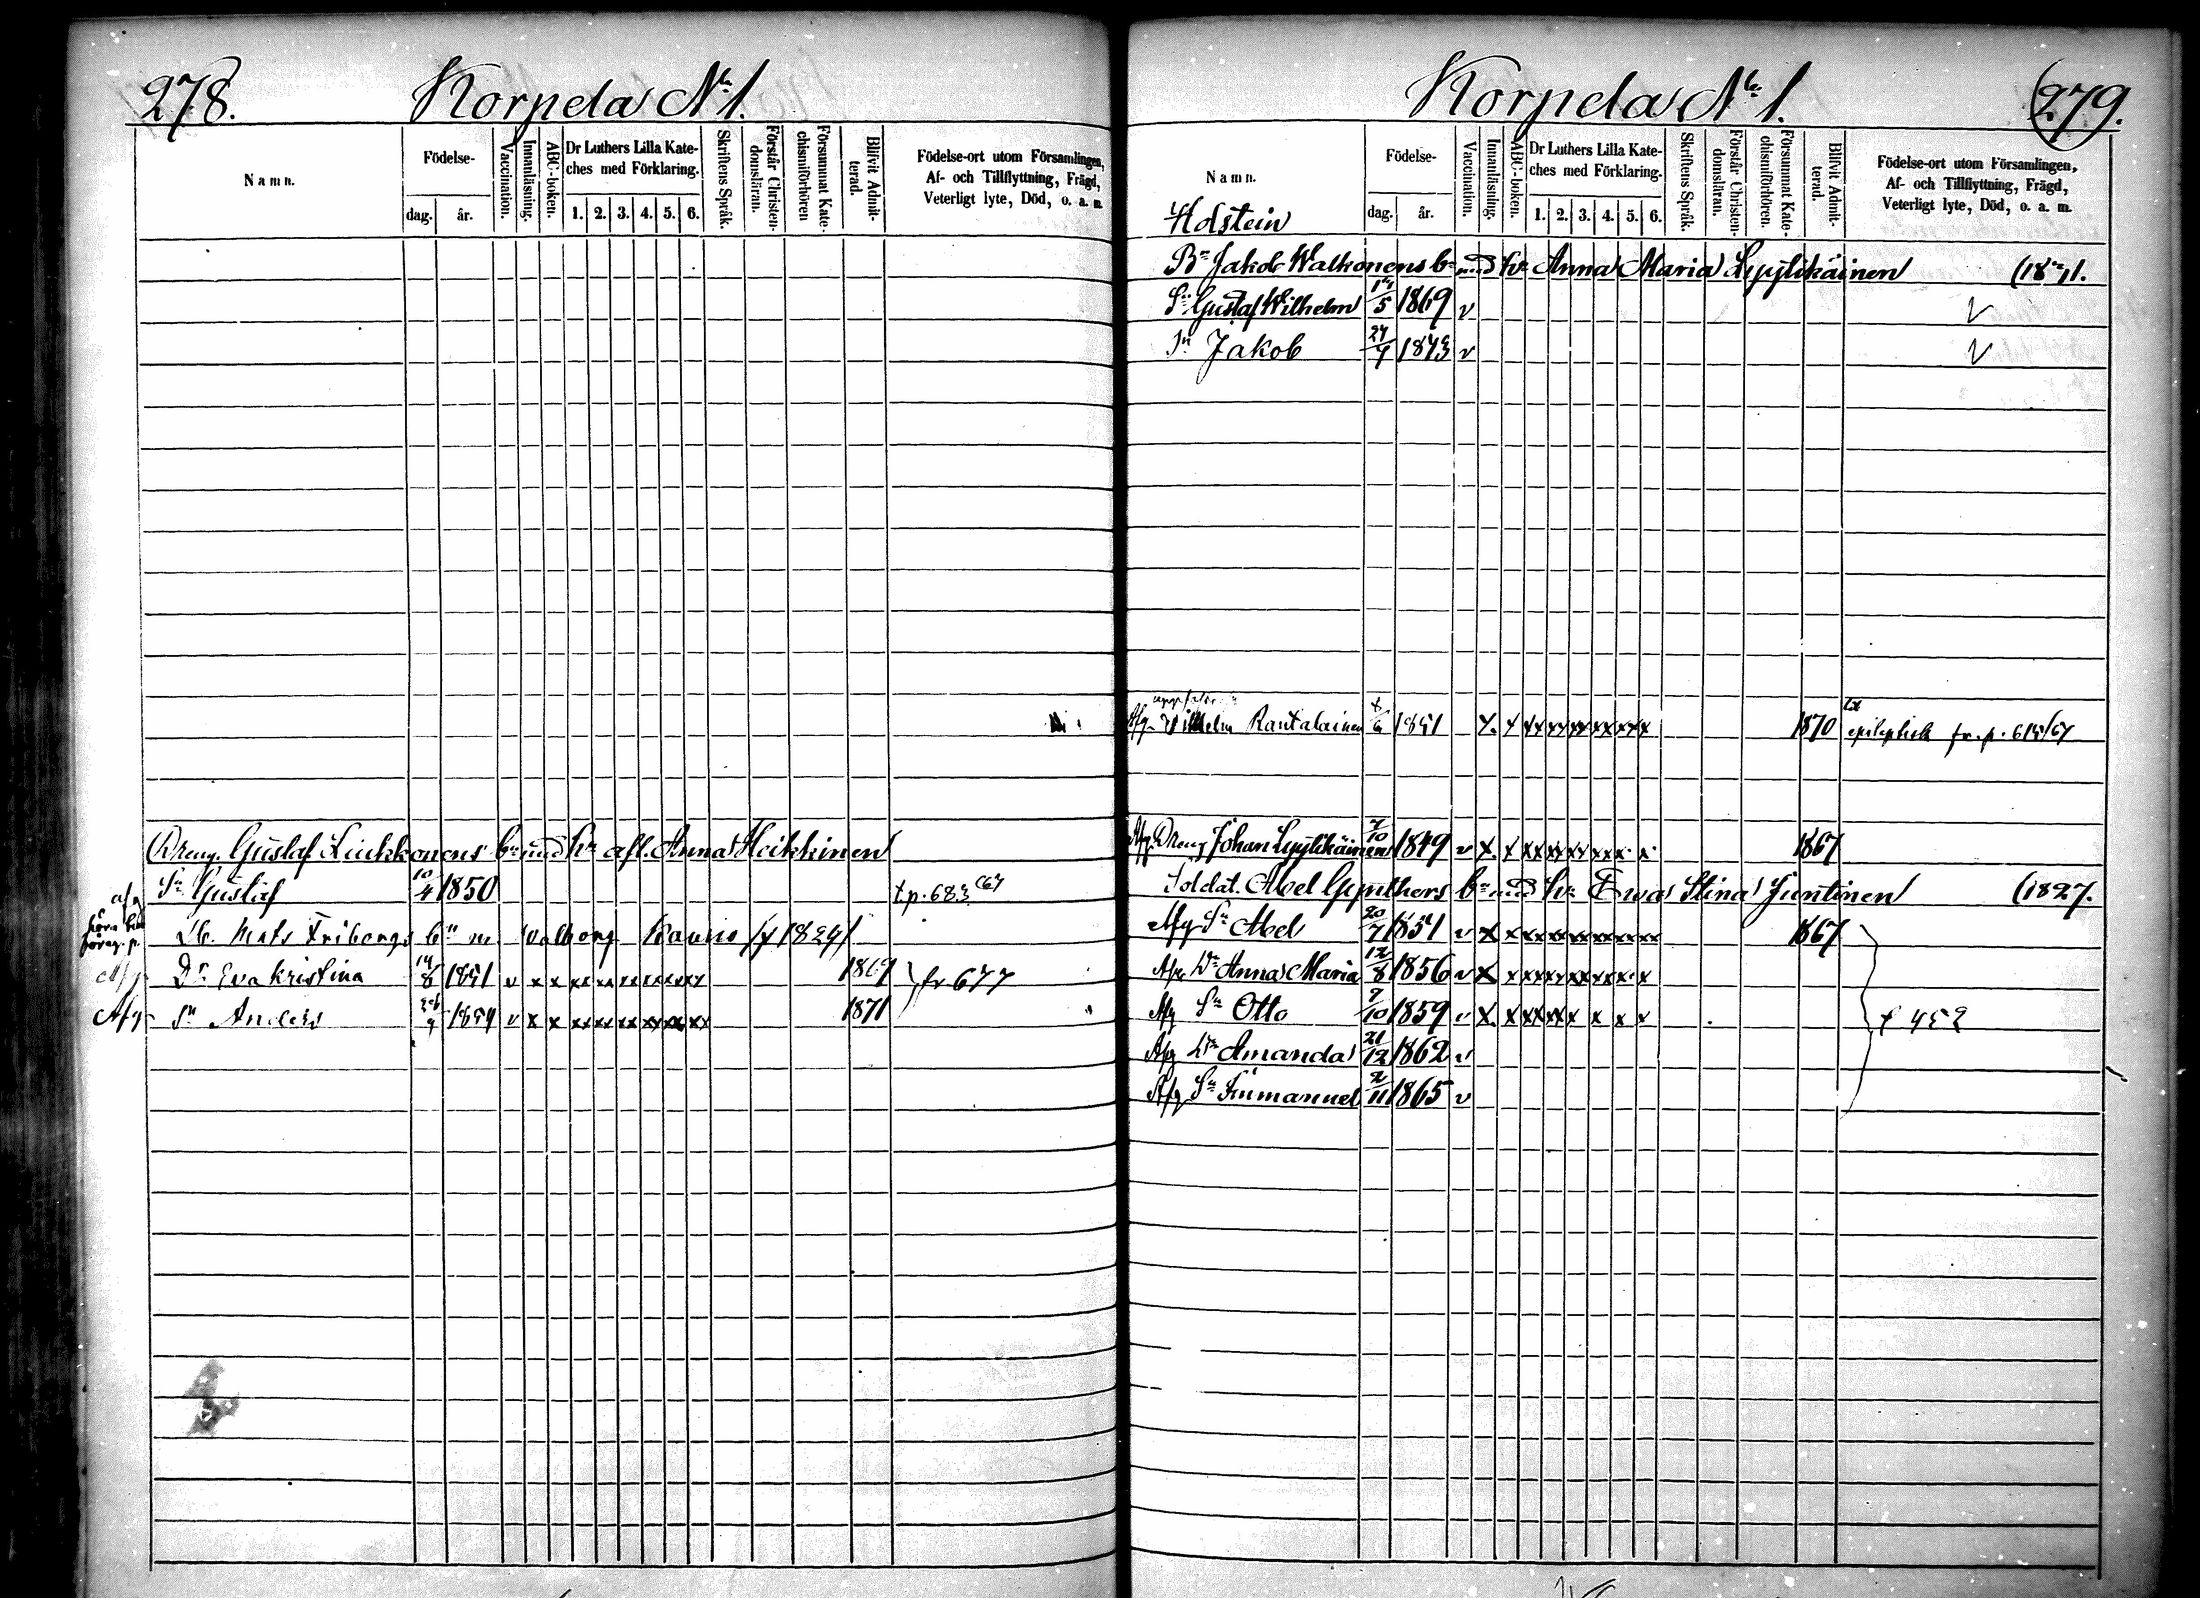 278. Korpela N:o 1.
Namn.
Födelse-
dag. år.
Vaccination.
Innanläsning.
ABC-boken.
Dr Luthers Lilla Kate-
ches med Förklaring.
1. 2. 3. 4. 5. 6.
Skriftens Språk.
Förstår Christen-
domsläran.
Försummat Kate-
chismiförhören
Blifvit Admit-
terad.
Födelse-ort utom Församlingen,
Af- och Tillflyttning, Frägd,
Veterligt lyte, Död, o. a. m.
Dreng. Gustaf Liukkonens b:n med h:n afl. Anna Heikkinen
Sn Gustaf 10/4 1850 t p. 683/67
Mats Fribergs bn m Valborg 1824
Afg Dr Eva Kristina 14/8 1851 v x x xx xx xx xx xx xx 1869 fr 677
Afg Sn Anders 1854 v x x xx xx xx xx xx xx 1871
Korpela N:o 1. 279.
Namn.
Födelse-
dag. år.
Vaccination.
Innanläsning.
ABC-boken.
Dr Luthers Lilla Kate-
ches med Förklaring.
1. 2. 3. 4. 5. 6.
Skriftens Språk.
Förstår Christen-
domsläran.
Försummat Kate-
chismiförhören.
Blifvit Admit-
terad.
Födelse-ort utom Församlingen,
Af- och Tillflyttning, Frägd,
Veterligt lyte, Död, o. a. m.
Holstein
Bn Jakob Walkonens bn med hn Anna Maria Lyytikäinen
Sn Gustaf Wilhelm 1869 v v
Sn Jakob 1873 v v
Afg Wilhelm Rantalainen 1851 x x xx xx xx xx xx x 1870 epileptisk fr. p.
Afg Dreng Johan Lyytikäinen 7/10 1849 v x x xx xx xx xx x x 1867
Soldat. Abel Gynthers bn med hn Ewa Stina Juntinen (1827.
Afg Sn Abel 20/7 1851 v x x xx xx xx xx xx xx 1867
Afg Dr Anna Maria 12/8 1856 v x x xx xx xx xx x x
Afg Sn Otto 7/10 1859 v x x xx xx x x x x t 452
Afg Dr Amanda 21/12 1862 v
Afg Sn Immanuel 2/11 1865 v